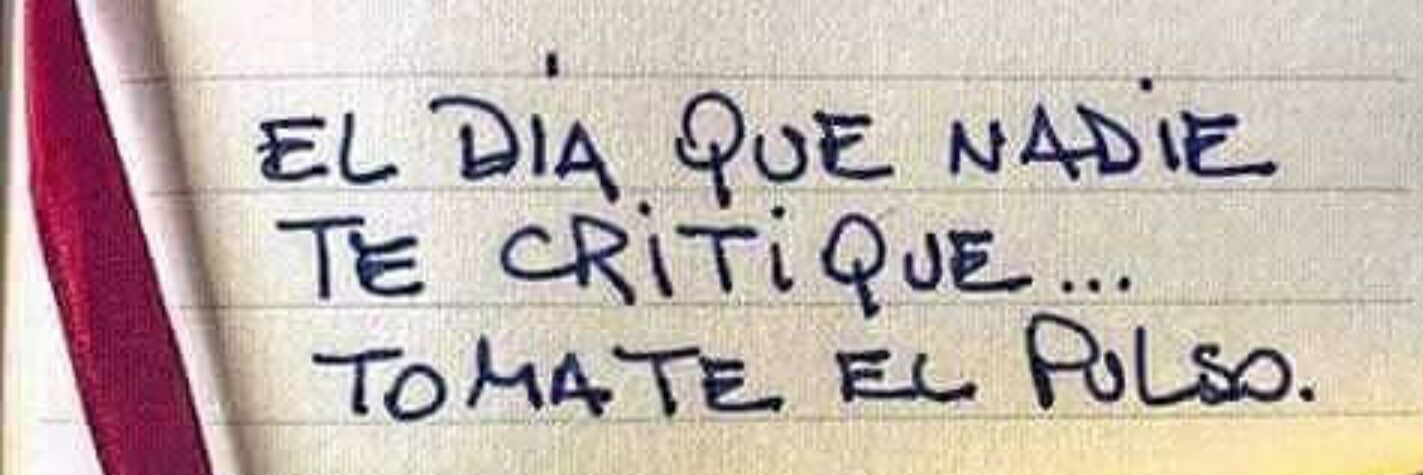 EL DÍA QUE NADIE
TE CRITIQUE...
TOMATE EL PULSO.